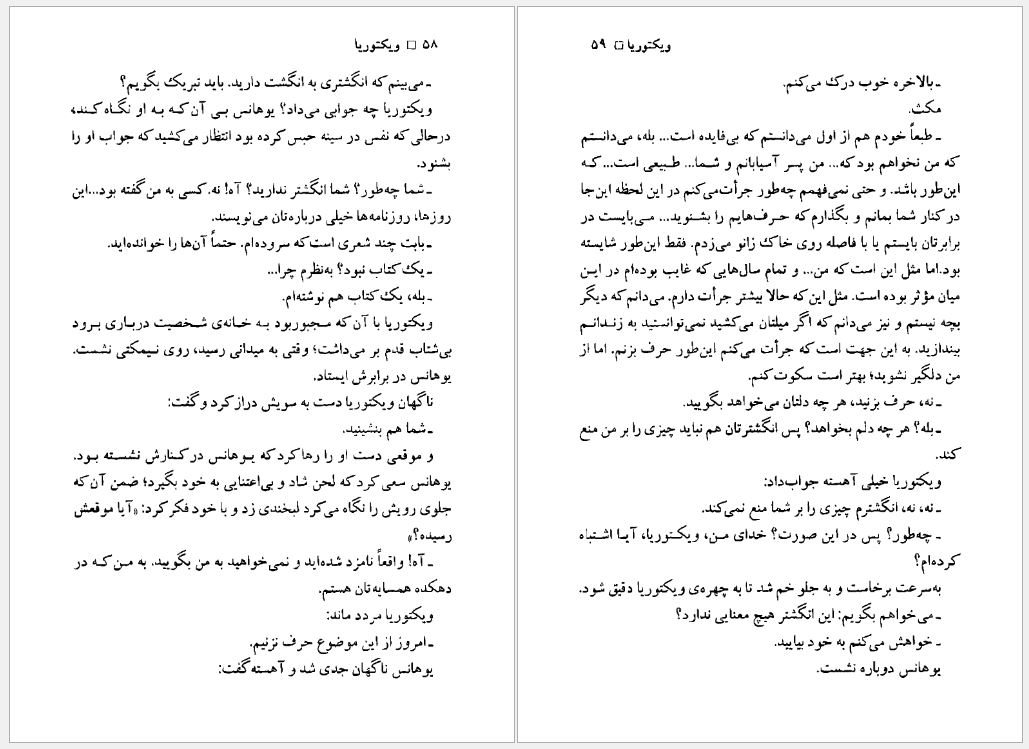 ۵۸ □ ویکتوریا
ـ می‌بینم که انگشتری به انگشت دارید. باید تبریک بگویم؟
ویکتوریا چه جوابی می‌داد؟ یوهانس بی آن‌که به او نگاه کند،
درحالی که نفس در سینه حبس کرده بود انتظار می‌کشید که جواب او را
بشنود.
ـ شما چه‌طور؟ شما انگشتر ندارید؟ آه! نه. کسی به من گفته بود... این
روزها، روزنامه‌ها خیلی درباره‌تان می‌نویسند.
ـ بابت چند شعری است که سروده‌ام. حتماً آن‌ها را خوانده‌اید.
ـ یک کتاب نبود؟ به‌نظرم چرا...
ـ بله، یک کتاب هم نوشته‌ام.
ویکتوریا با آن که مجبوربود به خانه‌ی شخصیت درباری برود
بی‌شتاب قدم بر می‌داشت؛ وقتی به میدانی رسید، روی نیمکتی نشست.
یوهانس در برابرش ایستاد.
ناگهان ویکتوریا دست به سویش دراز کرد و گفت:
ـ شما هم بنشینید.
و موقعی دست او را رها کرد که یوهانس در کنارش نشسته بود.
یوهانس سعی کرد که لحن شاد و بی‌اعتنایی به خود بگیرد؛ ضمن آن که
جلوی رویش را نگاه می‌کرد لبخندی زد و با خود فکر کرد: «آیا موقعش
رسیده؟»
ـ آه! واقعاً نامزد شده‌اید و نمی‌خواهید به من بگویید. به من که در
دهکده همسایه‌تان هستم.
ویکتوریا مردد ماند:
ـ امروز از این موضوع حرف نزنیم.
یوهانس ناگهان جدی شد و آهسته گفت:
ویکتوریا □ ۵۹
ـ بالاخره خوب درک می‌کنم.
مکث.
ـ طبعاً خودم هم از اول می‌دانستم که بی‌فایده است... بله، می‌دانستم
که من نخواهم بود که... من پسر آسیابانم و شما... طبیعی است... که
این‌طور باشد. و حتی نمی‌فهمم چه‌طور جرأت می‌کنم در این لحظه این‌جا
در کنار شما بمانم و بگذارم که حرف‌هایم را بشنوید... می‌بایست در
برابرتان بایستم یا با فاصله روی خاک زانو می‌زدم. فقط این‌طور شایسته
بود. اما مثل این است که من... و تمام سال‌هایی که غایب بوده‌ام در این
میان مؤثر بوده است. مثل این‌که حالا بیشتر جرأت دارم. می‌دانم که دیگر
بچه نیستم و نیز می‌دانم که اگر میلتان می‌کشید نمی‌توانستید به زندانم
بیندازید. به این جهت است که جرأت می‌کنم این‌طور حرف بزنم. اما از
من دلگیر نشوید؛ بهتر است سکوت کنم.
ـ نه، حرف بزنید، هر چه دلتان می‌خواهد بگویید.
ـ بله؟ هر چه دلم بخواهد؟ پس انگشترتان هم نباید چیزی را بر من منع
کند.
ویکتوریا خیلی آهسته جواب‌داد:
ـ نه، نه، انگشترم چیزی را بر شما منع نمی‌کند.
ـ چه‌طور؟ پس در این صورت؟ خدای من، ویکتوریا، آیا اشتباه
کرده‌ام؟
به‌سرعت برخاست و به جلو خم شد تا به چهره‌ی ویکتوریا دقیق شود.
ـ می‌خواهم بگویم: این انگشتر هیچ معنایی ندارد؟
ـ خواهش می‌کنم به خود بیایید.
یوهانس دوباره نشست.